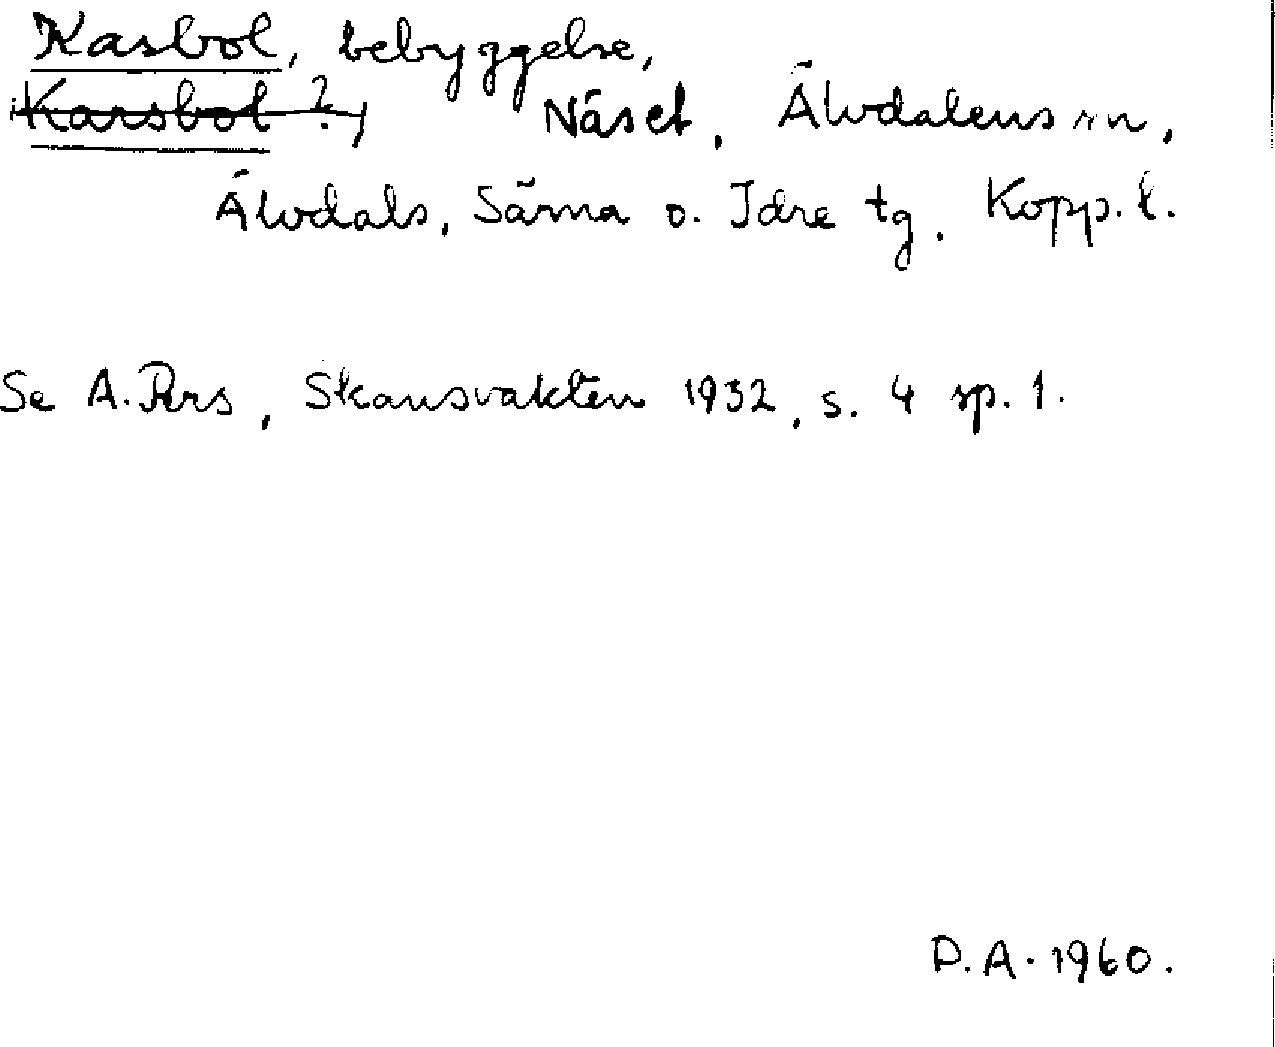 Kasbol, bebyggelse,
Karsbol ?, Näset, Älvdalens sn,
Älvdals, Särna o. Idre tg. Kopp. l.
Se A. Pers, Skansvakten 1932, s. 4 sp. 1.
D.A. 1960.